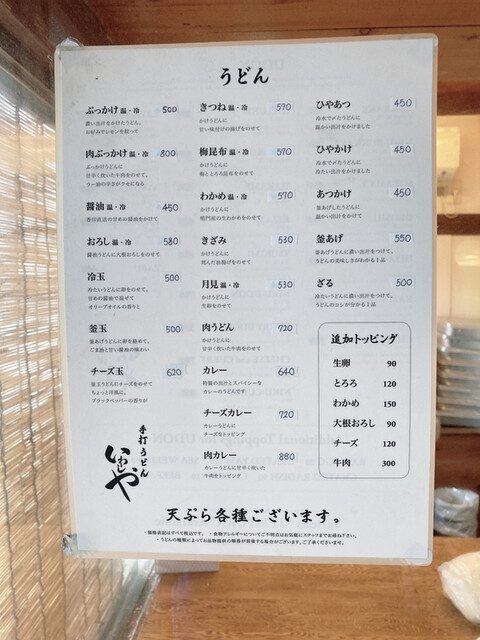 うどん
ぶっかけ 温・冷 500
濃い出汁をかけたうどん。
お好みでレモンを絞って
肉ぶっかけ 温・冷 800
ぶっかけうどんに
甘辛く炊いた牛肉をのせて。
ラー油の辛さがクセになる
醤油 温・冷 450
香川直送の甘めの醤油をかけて
おろし 温・冷 580
醤油うどんに大根おろしをのせて
冷玉 500
冷たいうどんに卵をのせて。
甘めの醤油で混ぜて
オリーブオイルの香りと
釜玉 500
釜あげうどんに卵を絡めて。
ごま油と甘い醤油の味わい
チーズ玉 620
釜玉うどんにチーズをのせて
ちょっと洋風に。
ブラックペッパーの香りが
きつね 温・冷 570
かけうどんに
甘い味付けの揚げをのせて
梅昆布 温・冷 570
かけうどんに
梅ととろろ昆布をのせて
わかめ 温・冷 570
かけうどんに
鳴門産の生わかめをのせて
きざみ 530
かけうどんに
刻んだ油揚げをのせて
月見 温・冷 530
かけうどんに
生卵をのせて
肉うどん 720
かけうどんに
甘辛く炊いた牛肉をのせて
カレー 640
特製の出汁とスパイシーな
カレーのうどんです
チーズカレー 720
カレーうどんに
チーズをトッピング
肉カレー 880
カレーうどんに甘辛く炊いた
牛肉をトッピング
ひやあつ 450
冷水で〆たうどんに
温かい出汁をかけました
ひやかけ 450
冷水で〆たうどんに
冷たい出汁をかけました
あつかけ 450
釜あげしたうどんに
温かい出汁をかけて
釜あげ 550
釜あげうどんに濃い出汁をつけて。
うどんの美味しさがわかる1品
ざる 500
冷たいうどんに濃い出汁をつけて。
うどんのコシが分かる1品
追加トッピング
生卵 90
とろろ 120
わかめ 150
大根おろし 90
チーズ 120
牛肉 300
手打うどん
いわしや
天ぷら各種ございます。
・価格表記はすべて税込です。 ・食物アレルギーについてご不明点はお気軽にスタッフまでお尋ね下さい。
・うどんの種類によってお品物提供の順番が前後する場合がございます。ご了承くださいませ。